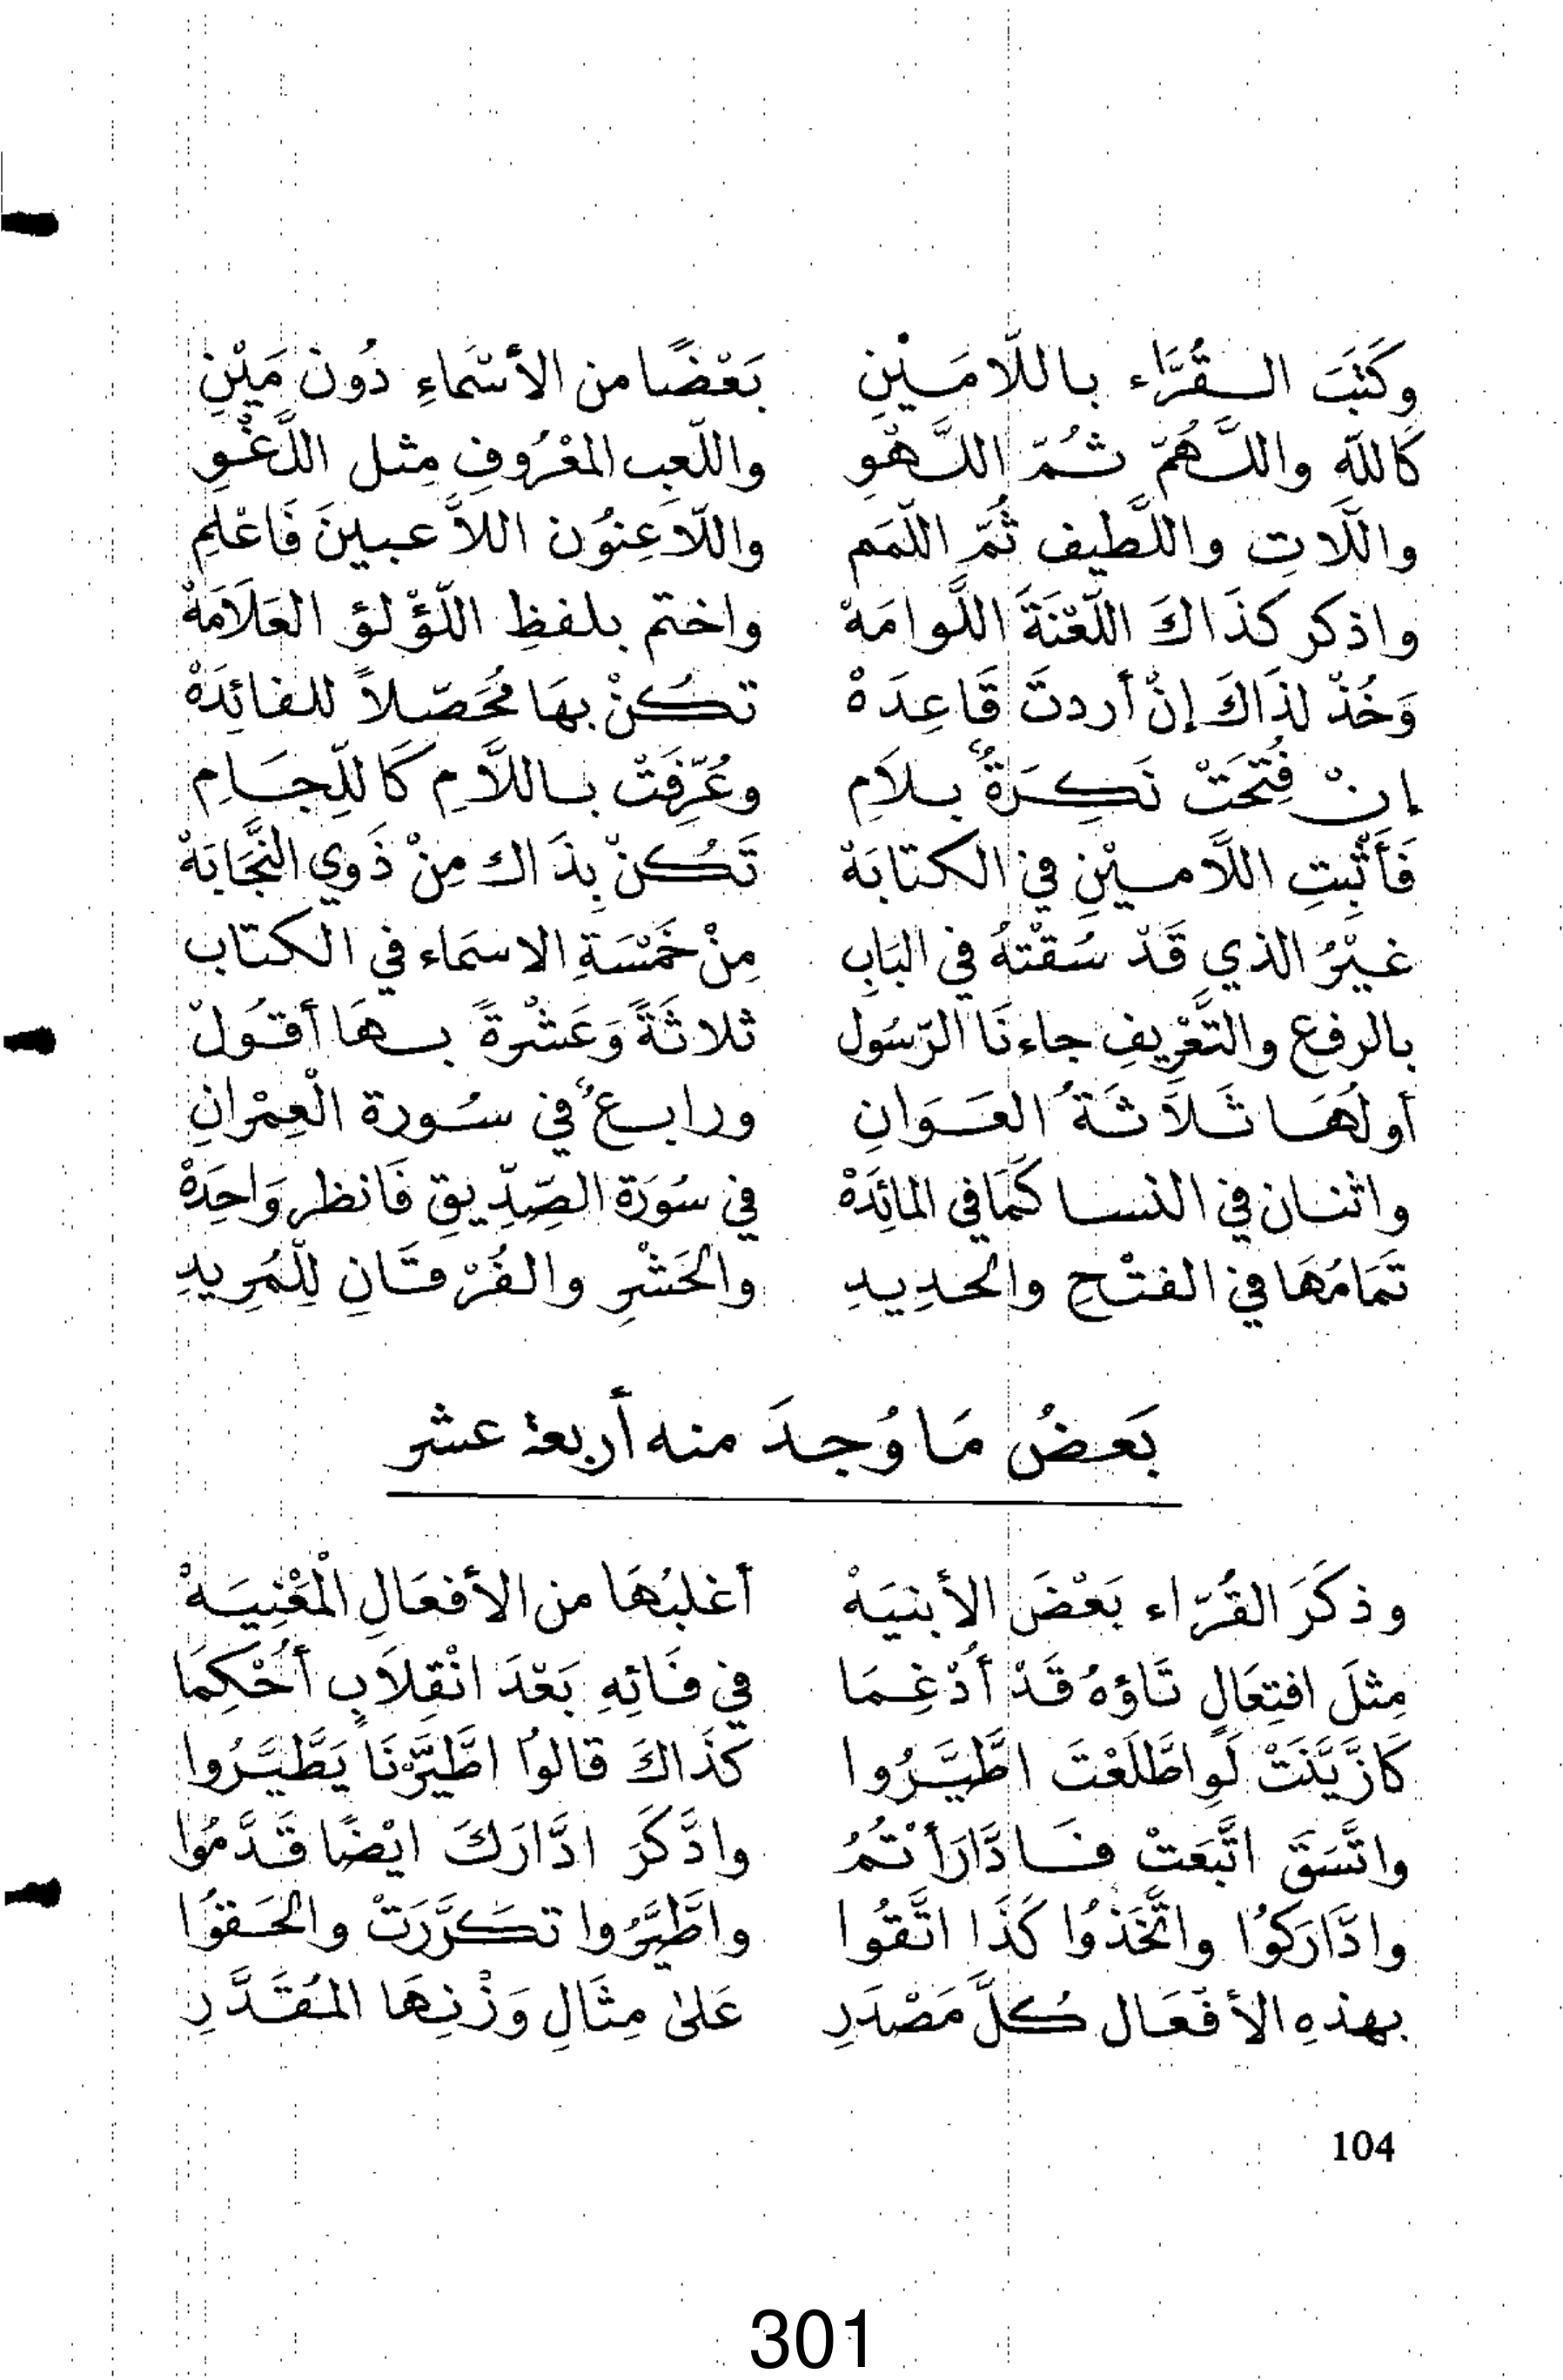 وكَتَبَ القُرَّاء باللّامَيْنِ بَعْضًا من الأسْمَاءِ دُونَ مَيْنِ
كَاللّه واللَّهُمّ ثُمّ اللَّهْوِ واللّعِبِ المعْرُوفِ مِثل اللَّغْوِ
واللَّاتِ واللَّطيف ثُمَّ اللّمَم واللّاعِنُون اللاَّعبينَ فَاعْلَمِ
واذكر كذَاكَ اللّعْنَةَ اللَّوامَهْ واختم بلفظِ اللّؤْلؤ العَلاَمَهْ
وَخُذْ لذَاكَ إنْ أردتَ قَاعِدَهْ تكُنْ بهَا مُحَصّلاً للفائِدَهْ
إنْ فُتِحَتْ نَكِرَةٌ بلاَمِ وعُرِّفَتْ باللاَّمِ كَاللِّجَامِ
فَأَثْبِتِ اللَّامَيْنِ في الكتَابَهْ تَكُنْ بِذَاك مِنْ ذَوي النَّجَابَهْ
غيْرُ الذي قَدْ سُقْتهُ في البَابِ مِنْ خَمْسَةِ الاسمَاء في الكتاب
بالرفع والتَّعْرِيفِ جاءنَا الرّسُول ثلاثَةً وَعَشْرةً بهَا أقُولْ
أولهَا ثَلاَثَةُ العَوَانِ ورابعٌ في سُورة الْعِمْرانِ
واثنان في النسا كمَا في المائِدَهْ في سُورَة الصِّدِّيقِ فَانظر وَاحِدَهْ
تمَامُهَا في الفتْحِ والحدِيدِ والحَشْرِ والفُرْقَانِ لِلْمُرِيدِ
بَعضُ مَا وُجدَ منه أربعة عشر
وذكَرَ القُرّاء بَعْضَ الأبنيَهْ أغلبُهَا من الأفعَالِ الْمَغْنِيَهْ
مِثلَ افتِعَالٍ تَاؤهُ قَدْ أُدْغِمَا في فَائِهِ بَعْدَ انْقِلاَبٍ أُحْكِمَا
كَازَّيَّنَتْ لَوِاطَّلَعْتَ اطَّيَّرُوا كَذَاكَ قالوُا اطَّيَّرْنَا يَطَّيَّرُوا
واتَّسَقَ اتَّبَعَتْ فَادَّارَأْتُمُ وادَّكَرَ ادَّارَكَ ايْضًا قَدَّمُوا
وادَّارَكوُا واتَّخَذوُا كَذَا اتَّقُوا واطَّيَّرُوا تكَرَّرَتْ والحَقوُا
بهذهِ الأفْعَال كلَّ مَصْدَرِ عَلىٰ مِثَالِ وَزْنِهَا المُقَدَّرِ
104
301